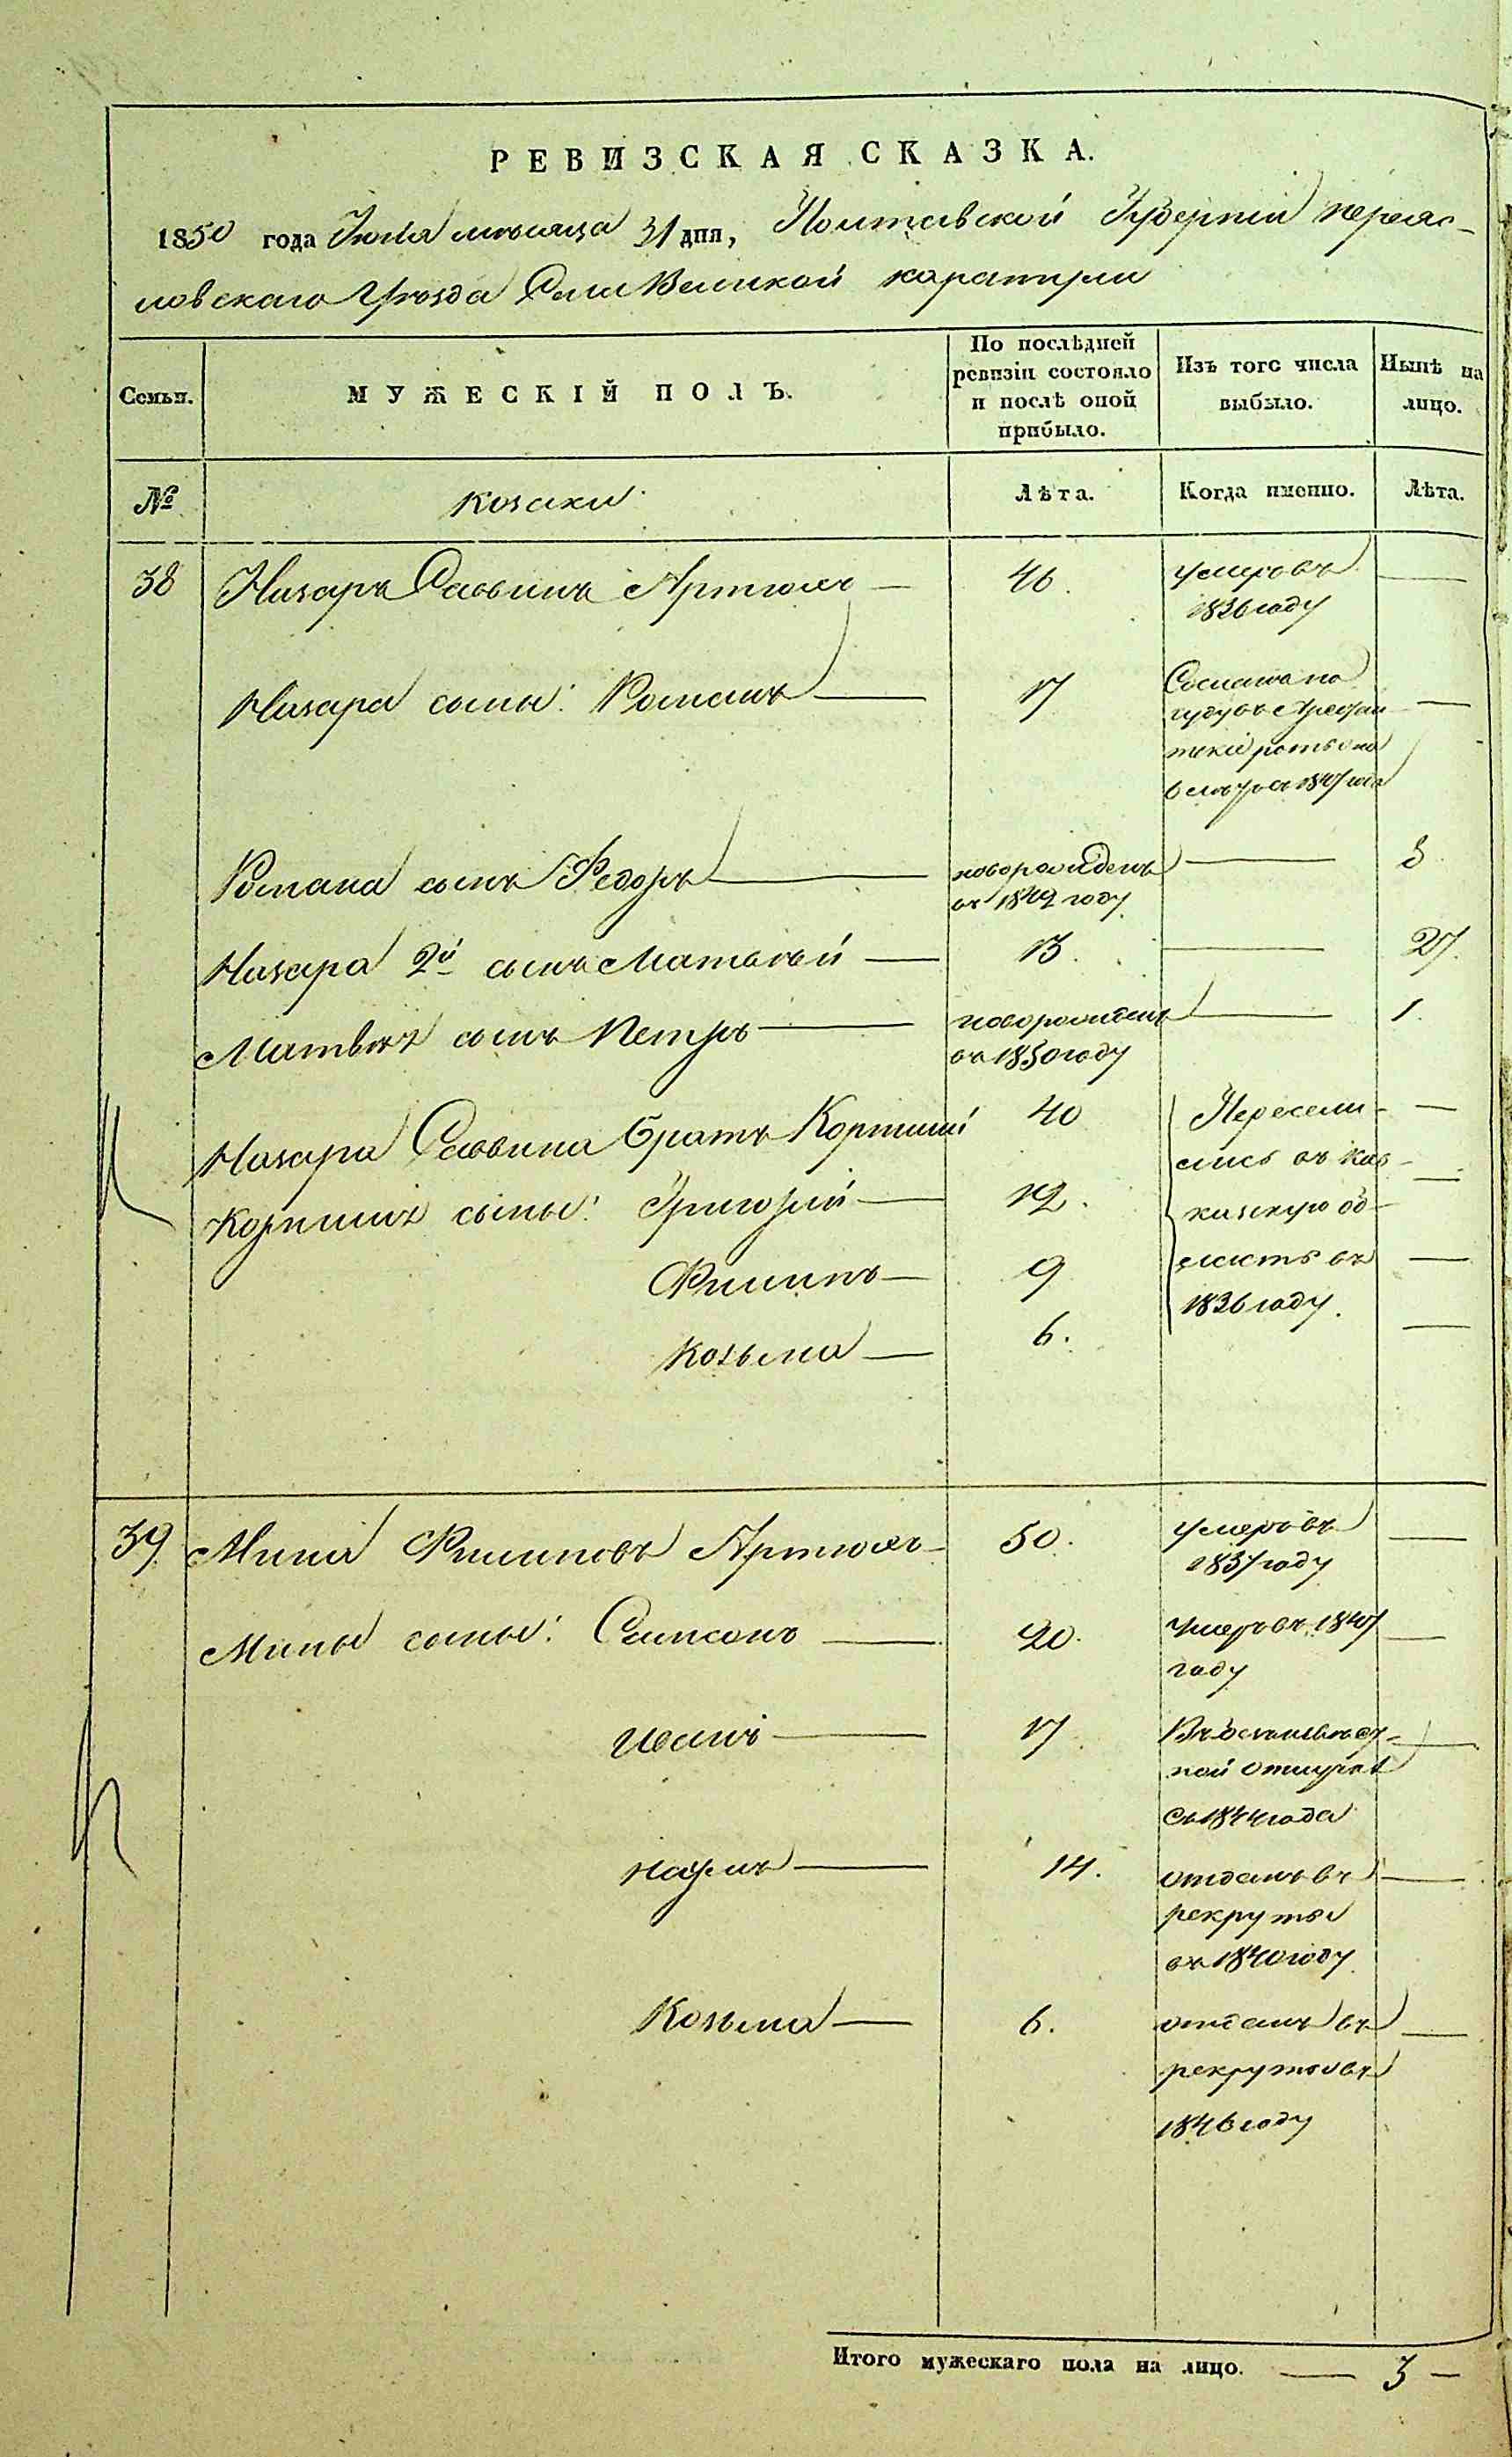 РЕВИЗСКАЯ СКАЗКА.
1850 года Июля месяца 31 дня, Полтавской Губерніи переяс-
ловскаго Уѣзда Села Великой каратули
Семьи.
МУЖЕСКІЙ ПОЛЪ.
По послѣдней
ревизіи состояло
и послѣ оной
прибыло.
Изъ того числа
выбыло.
Нынѣ на
лицо.
№
козаки
Лѣта.
Когда именно.
Лѣта.
38 Назаръ Саввинъ Артюхъ — 46. умеръ въ —
1836 году
Назара сыны: Романъ — 17 Сосланъ на —
роты на
1847 года
Романа сынъ Федоръ — новорожденъ — 3
въ 1849 году
Назара 2й сынъ Матвѣй — 13. — 27.
Матвѣя сынъ Петръ — новорожденъ — 1.
въ 1850 году
Назара Саввина братъ Корнилій 40 Пересели- —
Корнилія сыны: Григорій — 12. лись въ кав- —
казскую об-
Филипъ — 9 ласть въ —
1836 году.
Козьма — 6. —
39 Мина Филиповъ Артюхъ — 50. умеръ въ —
1837 году
Мины сыны: Сампсонъ — 20. умеръ въ 1847 —
году
Иванъ — 17. —
ной отлучкѣ
съ 1844 года
Наумъ — 14. отданъ въ —
рекруты
въ 1840 году
Козьма — 6. отданъ въ —
рекруты въ
1846 году
Итого мужескаго пола на лицо. — 3 —